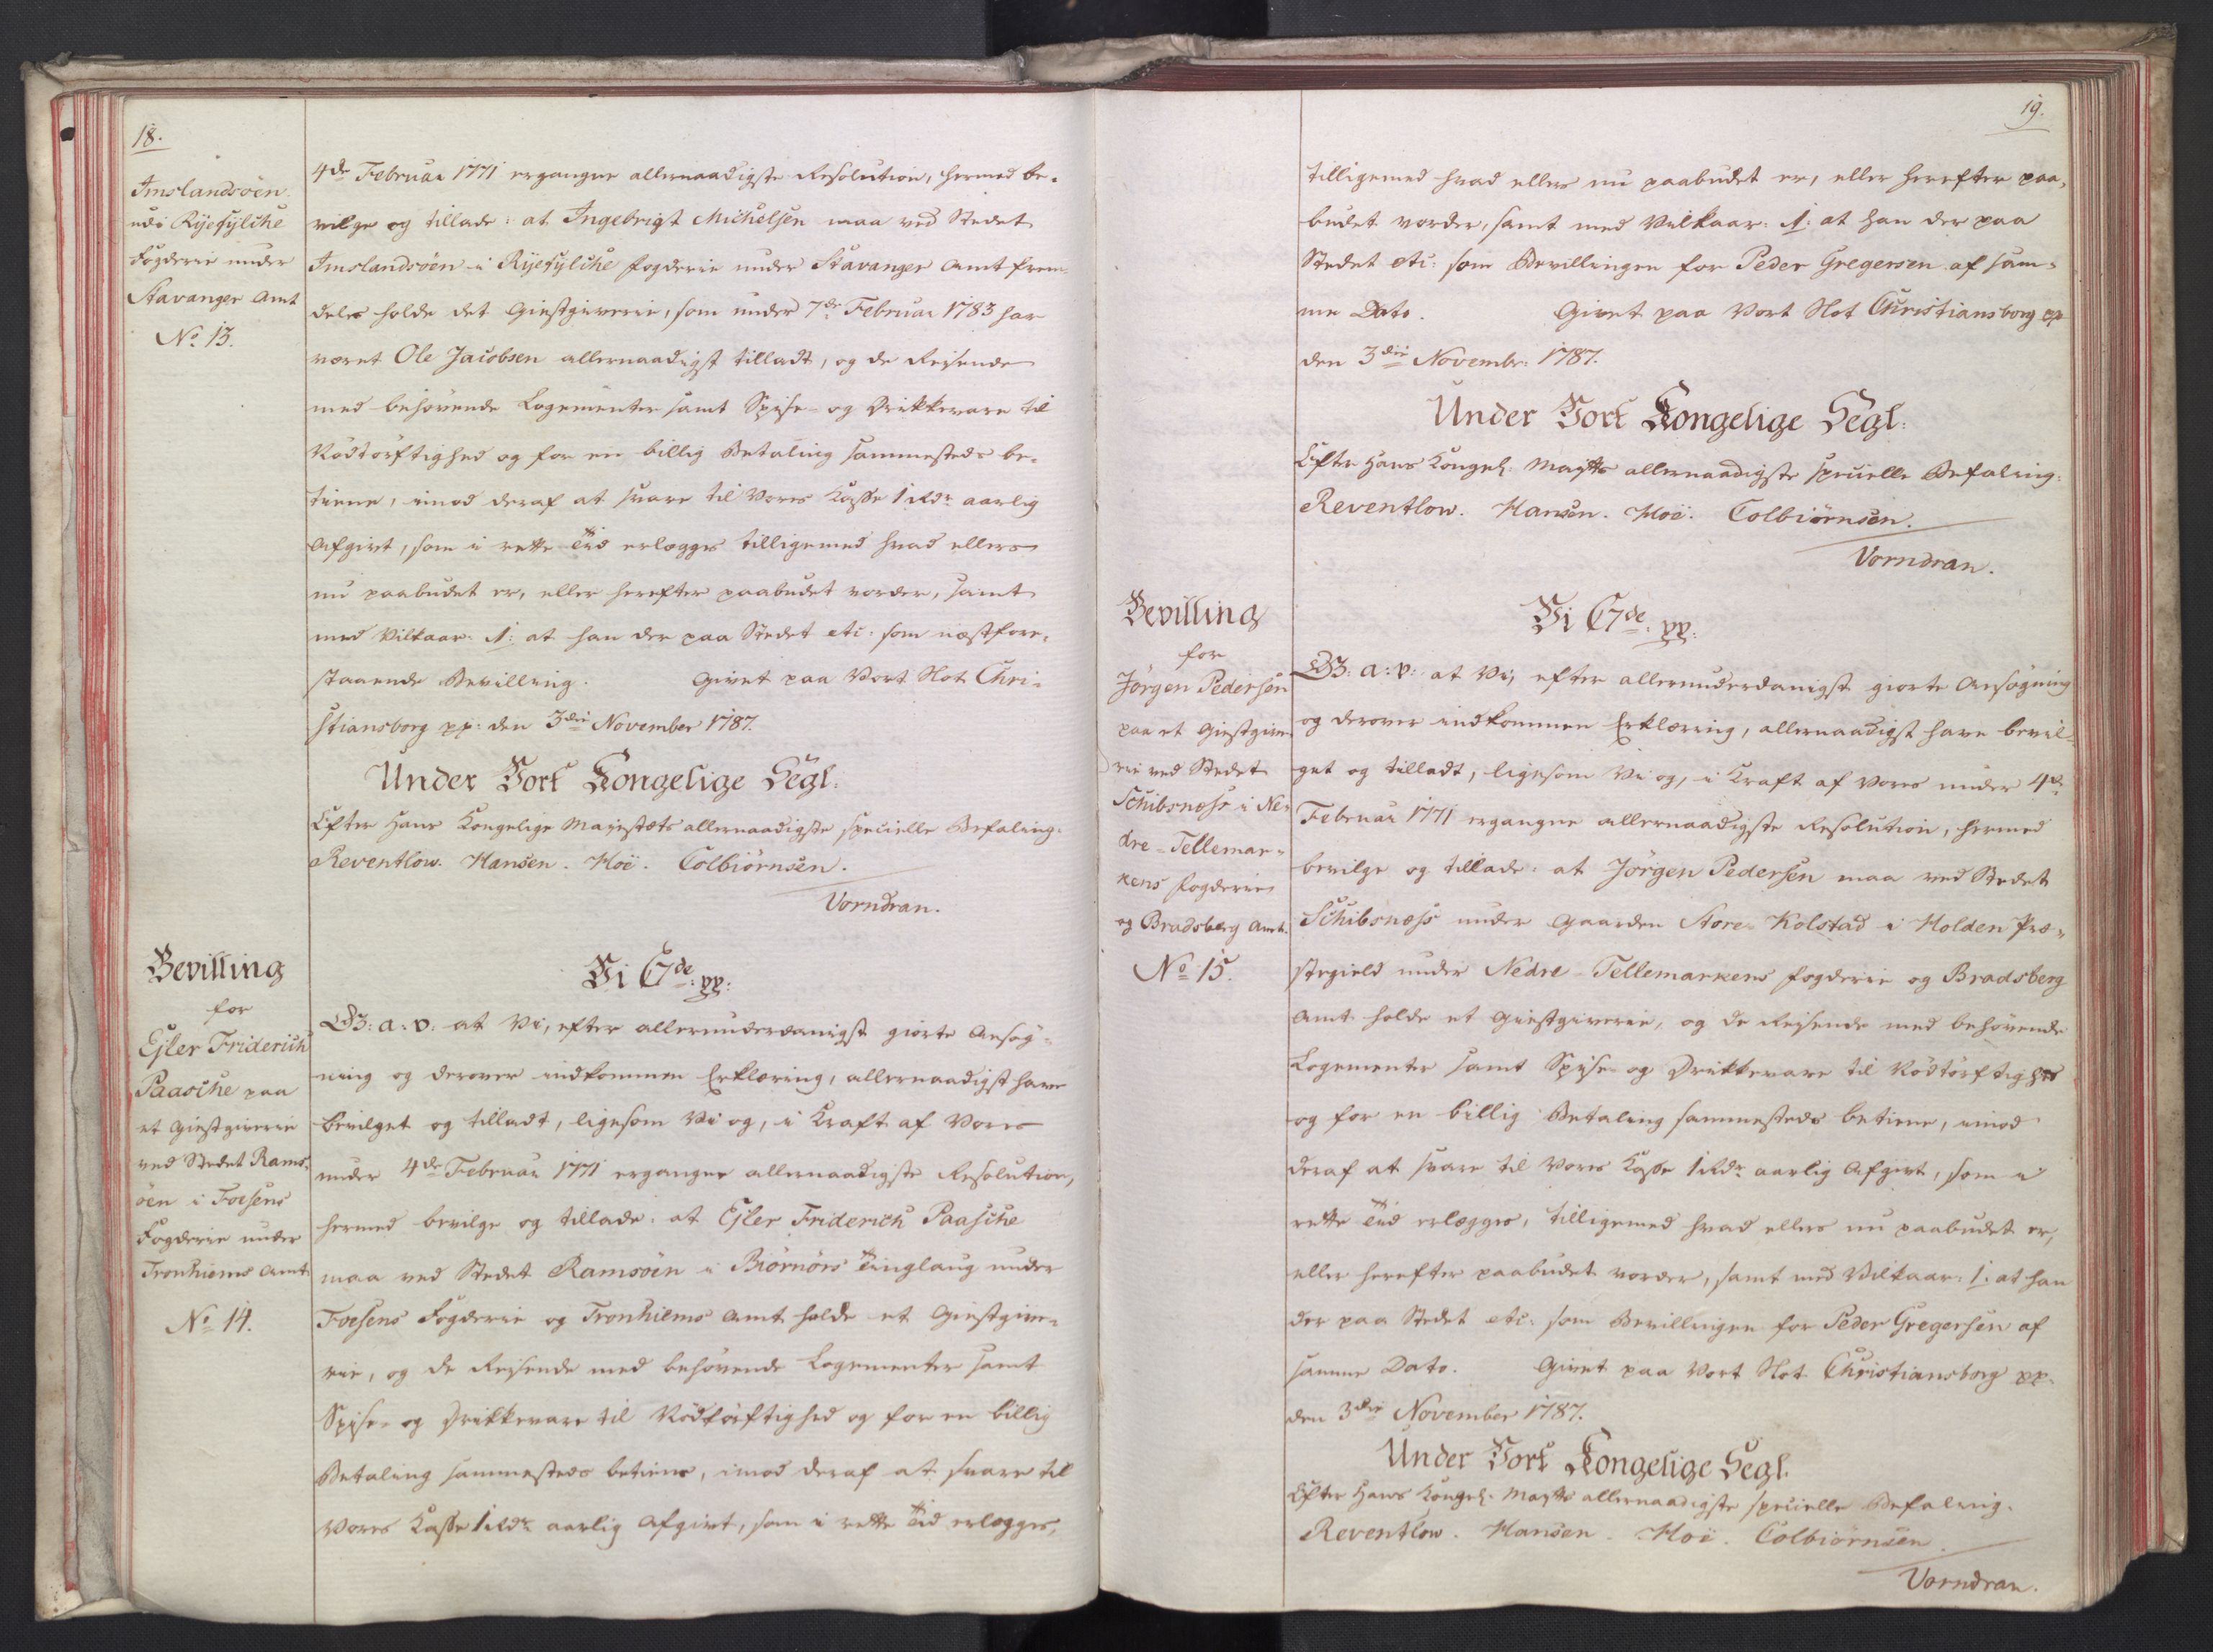 18.
Imslandsöen
udi Rÿefÿlche
Fogderie under
Stavanger Amt
No 13.
4de Februar 1771 ergangne allernaadigste Resolution, hermed be-
vilge og tillade: at Ingebrigt Michelsen maa ved Stedet
Imslandsöen i Rÿefÿlche Fogderie under Stavanger Amt frem-
deles holde det Giestgiverie, som under 7de Februar 1783 har
været Ole Jacobsen allernaadigst tilladt, og de Reisende
med behövende Logementer samt Spise- og Drikkevare til
Nödtörftighed og for en billig Betaling sammesteds be-
tiene, imod deraf at svare til Vores Kasse 1 Rdr aarlig
Afgivt, som i rette Tid erlægges tilligemed hvad ellers
nu paabudet er, eller herefter paabudet vorder, samt
med Vilkaar: 1: at han der paa Stedet etc: som næstfore-
staaende Bevilling. Givet paa Vort Slot Chri-
stiansborg pp: den 3die November 1787.
Under Vort Kongelige Segl:
Efter Hans Kongelige Majestæts allernaadigste specielle Befaling.
Reventlow. Hansen. Hoë. Colbiörnsen.
Vorndran.
Bevilling
for
Ejler Friderich
Paasche paa
et Giestgiverie
ved Stedet Rams-
öen i Foesens
Fogderie under
Tronhiems Amt
No 14.
Vi C7de: pp:
G3: a: v: at Vi, efter allerunderdanigst giorte Ansög-
ning og derover indkommen Erklæring, allernaadigst have
bevilget og tilladt, ligesom Vi og, i Kraft af Vores
under 4de Februar 1771 ergangne allernaadigste Resolution,
hermed bevilge og tillade: at Ejler Friderich Paasche
maa ved Stedet Ramsöen i Biörnörs Tinglaug under
Foesens Fogderie og Tronhiems Amt holde et Giestgive-
rie, og de Reisende med behövende Logementer samt
Spise- og Drikkevare til Nödtörftighed og for en billig
Betaling sammesteds betiene, imod deraf at svare til
Vores Kasse 1 Rdr aarlig Afgivt, som i rette Tid erlægges,
19.
tilligemed hvad ellers nu paabudet er, eller herefter paa-
budet vorder, samt med Vilkaar: 1: at han der paa
Stedet etc: som Bevillingen for Peder Gregersen af sam-
me Dato. Givet paa Vort Slot Christiansborg pp
den 3die Novembr: 1787.
Under Vort Kongelige Segl:
Efter Hans Kongel: Maÿtts allernaadigste specielle Befaling:
Reventlow. Hansen. Hoë. Colbiörnsen.
Vorndran.
Bevilling
for
Jörgen Pedersen
paa et Giestgive-
rie ved Stedet
Schibsnæss i Ne-
dre-Tellemar-
kens Fogderie
og Bradsberg Amt.
No 15.
Vi C7de: pp:
G3: a: v: at Vi, efter allerunderdanigst giorte Ansögning
og derover indkommen Erklæring, allernaadigst have bevil-
get og tilladt, ligesom Vi og, i Kraft af Vores under 4de
Februar 1771 ergangne allernaadigste Resolution, hermed
bevilge og tillade: at Jörgen Pedersen maa ved Stedet
Schibsnæss under Gaarden Store-Kolstad i Holden Præ-
stegield under Nedre-Tellemarkens Fogderie og Bradsberg
Amt holde et Giestgiverie, og de Reisende med behövende
Logementer samt Spise- og Drikkevare til Nödtörftighed
og for en billig Betaling sammesteds betiene, imod
deraf at svare til Vores Kasse 1 Rdr aarlig Afgivt, som i
rette Tid erlægges, tilligemed hvad ellers nu paabudet er,
eller herefter paabudet vorder, samt med Vilkaar: 1: at han
der paa Stedet etc: som Bevillingen for Peder Gregersen af
samme Dato. Givet paa Vort Slot Christiansborg pp.
den 3die November 1787.
Under Vort Kongelige Segl.
Efter Hans Kongel: Maÿtts allernaadigste specielle Befaling.
Reventlow. Hansen. Hoë. Colbiörnsen.
Vorndran.